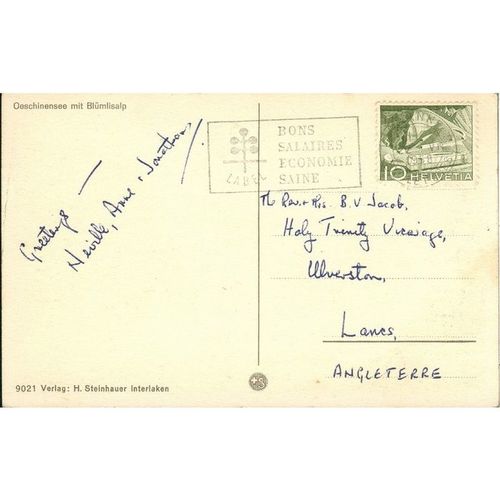 Oeschinensee mit Blümlisalp
Greetings —
Neville, Anne & Jonathan
BONS
SALAIRES
ECONOMIE
SAINE
LABEL
10 HELVETIA
The Rev. & Mrs. B. V Jacob,
Holy Trinity Vicarage,
Ulverston,
Lancs,
ANGLETERRE
9021 Verlag: H. Steinhauer Interlaken